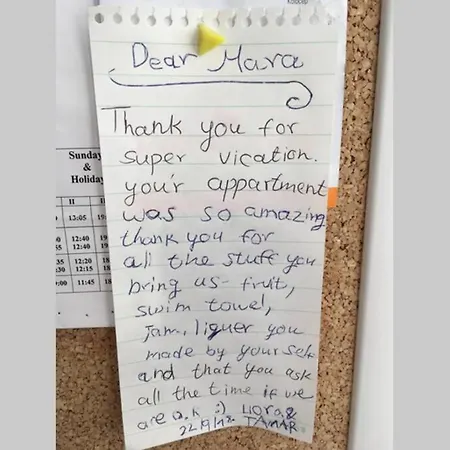 Dear Mara
Thank you for
super vication.
you'r appartment
was so amazing.
thank you for
all the stuff you
bring us - fruit,
swim towel,
jam, liquer you
made by your self
and that you ask
all the time if we
are o.k :) Liora &
TAMAR
Sunday
&
Holiday
II
II
13:05
19
12:40
19
12:40
35
12:20
18
:30
12:15
18
:00
11:45
18